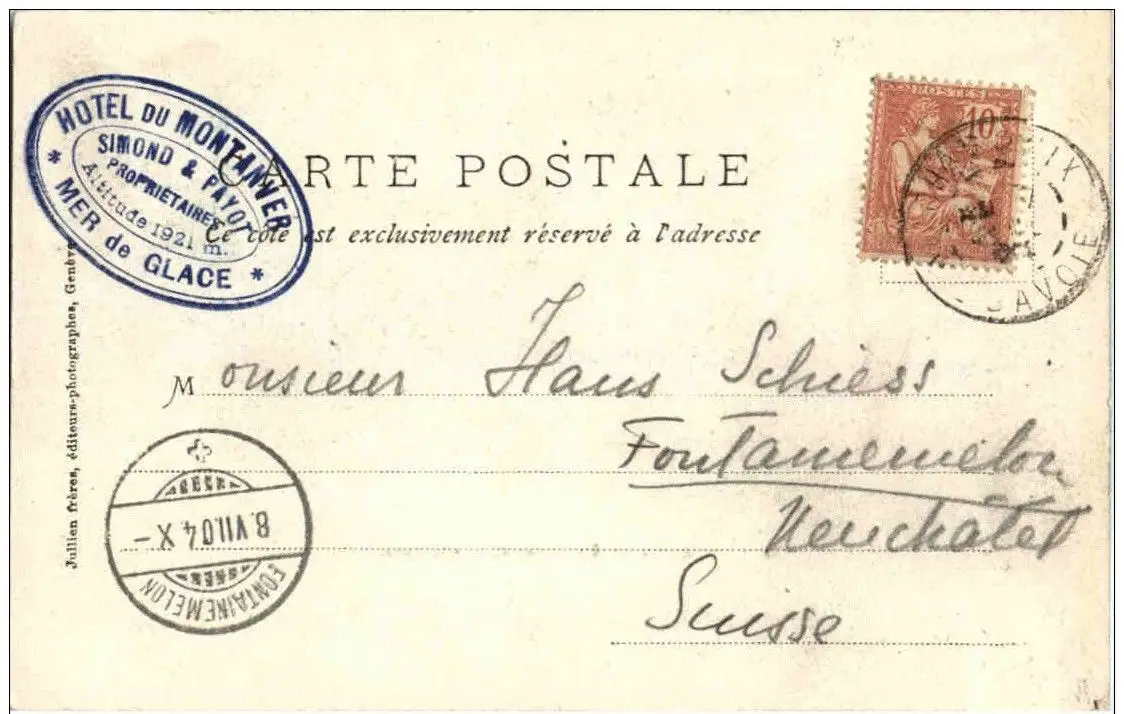 HOTEL DU MONTANVER
SIMOND & PAYOT
PROPRIÉTAIRES
Altitude 1921 m.
* MER de GLACE *
CARTE POSTALE
Ce côté est exclusivement réservé à l'adresse
POSTES
10
CHAMONIX
SAVOIE
Jullien frères, éditeurs-photographes, Genève
Monsieur Hans Schiess
Fontainemelon
Neuchâtel
Suisse
8.VII.04 X-
FONTAINEMELON